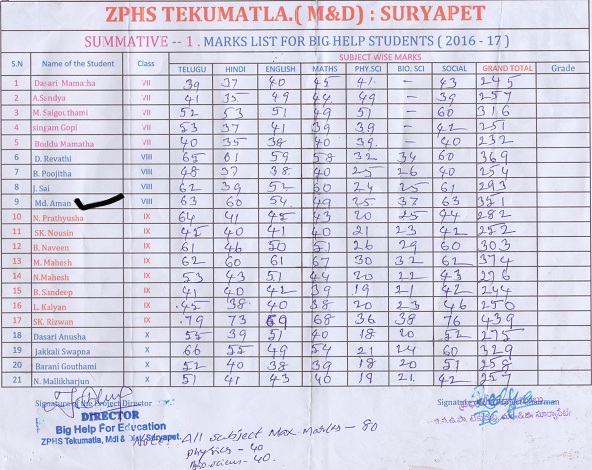 ZPHS TEKUMATLA.( M&D) : SURYAPET
SUMMATIVE -- 1 . MARKS LIST FOR BIG HELP STUDENTS ( 2016 - 17 )
S.N Name of the Student Class SUBJECT WISE MARKS GRAND TOTAL Grade
TELUGU HINDI ENGLISH MATHS PHY.SCI BIO. SCI SOCIAL
1 Dasari Mamatha VII 39 37 40 45 41 - 43 245
2 A.Sandya VII 41 35 49 44 49 - 39 257
3 M. Saigouthami VII 52 53 51 49 51 - 60 316
4 singam Gopi VII 53 37 41 39 39 - 42 251
5 Boddu Mamatha VII 40 35 38 40 39 - 40 232
6 D. Revathi VIII 65 61 59 58 32 34 60 369
7 B. Poojitha VIII 48 37 38 40 25 26 40 254
8 J. Sai VIII 62 39 52 60 24 25 61 293
9 Md. Aman VIII 63 60 54 49 25 37 63 351
10 N. Prathyusha IX 64 41 45 43 20 25 44 282
11 SK. Nousin IX 45 40 41 40 21 23 42 252
12 B. Naveen IX 61 46 50 51 26 29 60 303
13 M. Mahesh IX 62 60 61 67 30 32 62 374
14 N.Mahesh IX 53 43 51 44 20 22 43 276
15 B. Sandeep IX 41 40 42 39 19 21 42 244
16 L. Kalyan IX 45 38 40 38 20 23 46 250
17 SK. Rizwan IX 79 73 69 68 36 38 76 439
18 Dasari Anusha X 55 39 51 40 18 20 52 275
19 Jakkali Swapna X 66 55 49 54 21 24 60 329
20 Barani Gouthami X 52 40 38 39 18 20 51 258
21 N. Mallikharjun X 51 41 43 40 19 21 42 257
Signature of the Project Director
DIRECTOR
Big Help For Education
ZPHS Tekumatla, Mdl & Dist. Suryapet.
Note: All Subject Max. Marks - 80
Physics - 40